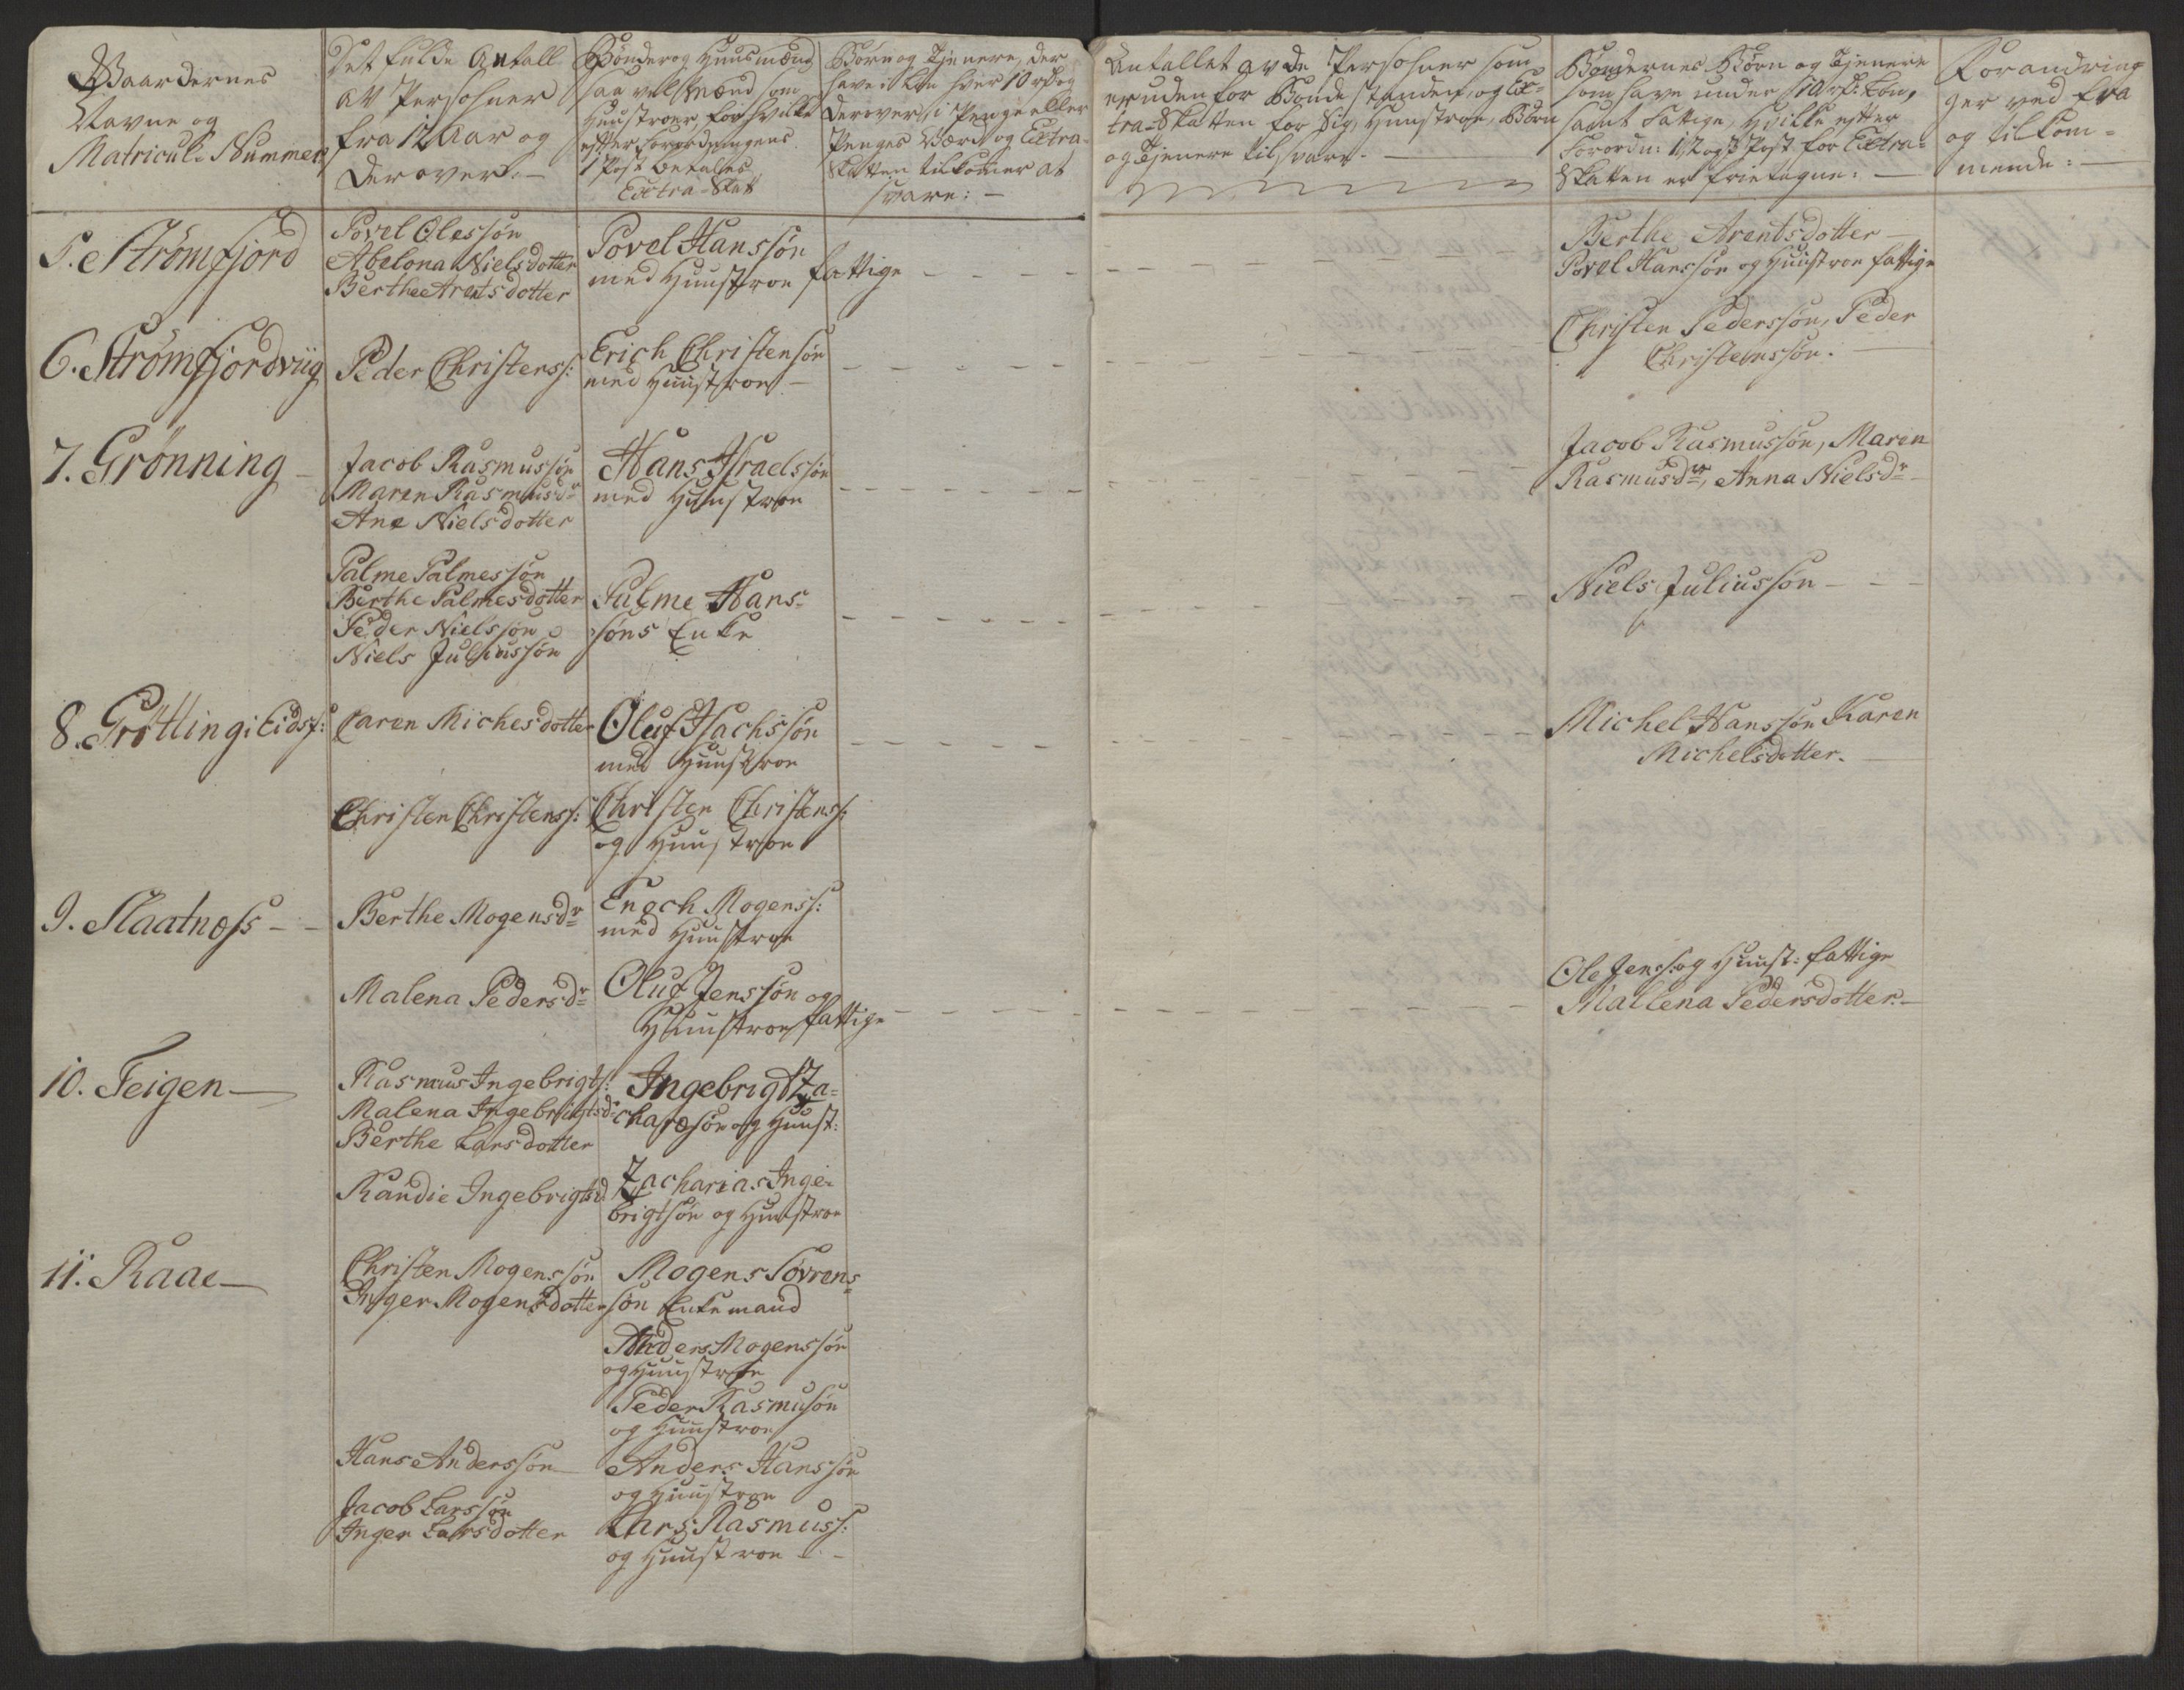 Gaardernes
Navne og
Matricul: Nummer
Det fulde Antall
av Persohner
fra 12 Aar og
derover.
Bønder og Huusmænd
saa vel Mænd som
Hustroer, for hvilke
efter Forordningens
1 Post betales
Extra-Skat
Børn og Tjenere, der
have i Løn hver 10 rdr og
derover i Penge eller
Penges Værd og Extra-
Skatten tilkomer at
svare: -
Antallet av de Persohner som
er uden for Bonde standen, og Ex-
tra-Skatten for sig, Hustroe, Børn
og Tjenere tilsvare. -
Bøndernes Børn og Tjenere
som have under 10 rdr: Løn,
samt Fattige, hvilke efter
Forordn: 1, 2 og 3 Post for Extra-
Skatten er frietagne: -
Forandrin-
ger ved fra
og tilkom-
mende: -
5. Strømfjord
Povel Olessøn
Abelona Nielsdotter
Berthe Arentsdotter
Povel Hanssøn
med Huustroe fattige
Berthe Arentsdotter -
Povel Hanssøn og Huustroe fattige
6. Strømfjordviig
Peder Christens:
Erich Christensøn
med Huustroe -
Christen Pederssøn, Peder
Christenssøn.
7. Grønning -
Jacob Rasmussøn
Maren Rasmusdr
Ane Nielsdotter
Hans Israelssøn
med Huustroe
Jacob Rasmussøn, Maren
Rasmusdr, Anna Nielsdr
Palme Palmessøn
Berthe Palmesdotter
Peder Nielssøn
Niels Juliussøn
Palme Hans-
søns Enke
Niels Juliussøn - - -
8. Grøtting i Eidsf:
Caren Michesdotter
Oluf Isachssøn
med Huustroe
Michel Hanssøn Karen
Michelsdotter.
Christen Christenss:
Christen Christenss:
og Huustroe
9. Slaatnøss - -
Berthe Mogensdr
Enoch Mogenss:
med Huustroe
Malena Pedersdr
Oluf Jenssøn og
Huustroe fattige
Ole Jenss: og Huust: fattige
Mallena Pedersdotter. -
10. Teigen -
Rasmus Ingebrigts:
Malena Ingebrigtsdr
Berthe Larsdotter
Ingebrigt Za-
chasøn og Huust:
Randie Ingebrigtsd
Zacharias Inge-
brigtsøn og Huustroe
11. Raae -
Christen Mogenssøn
Inger Mogensdotter
Mogens Søvrens-
søn Enkemand
Anders Mogenssøn
og Huustroe
Peder Rasmusøn
og Huustroe
Hans Anderssøn
Anders Hanssøn
og Huustroe
Jacob Larssøn
Inger Larsdotter
Lars Rasmuss:
og Huustroe - -